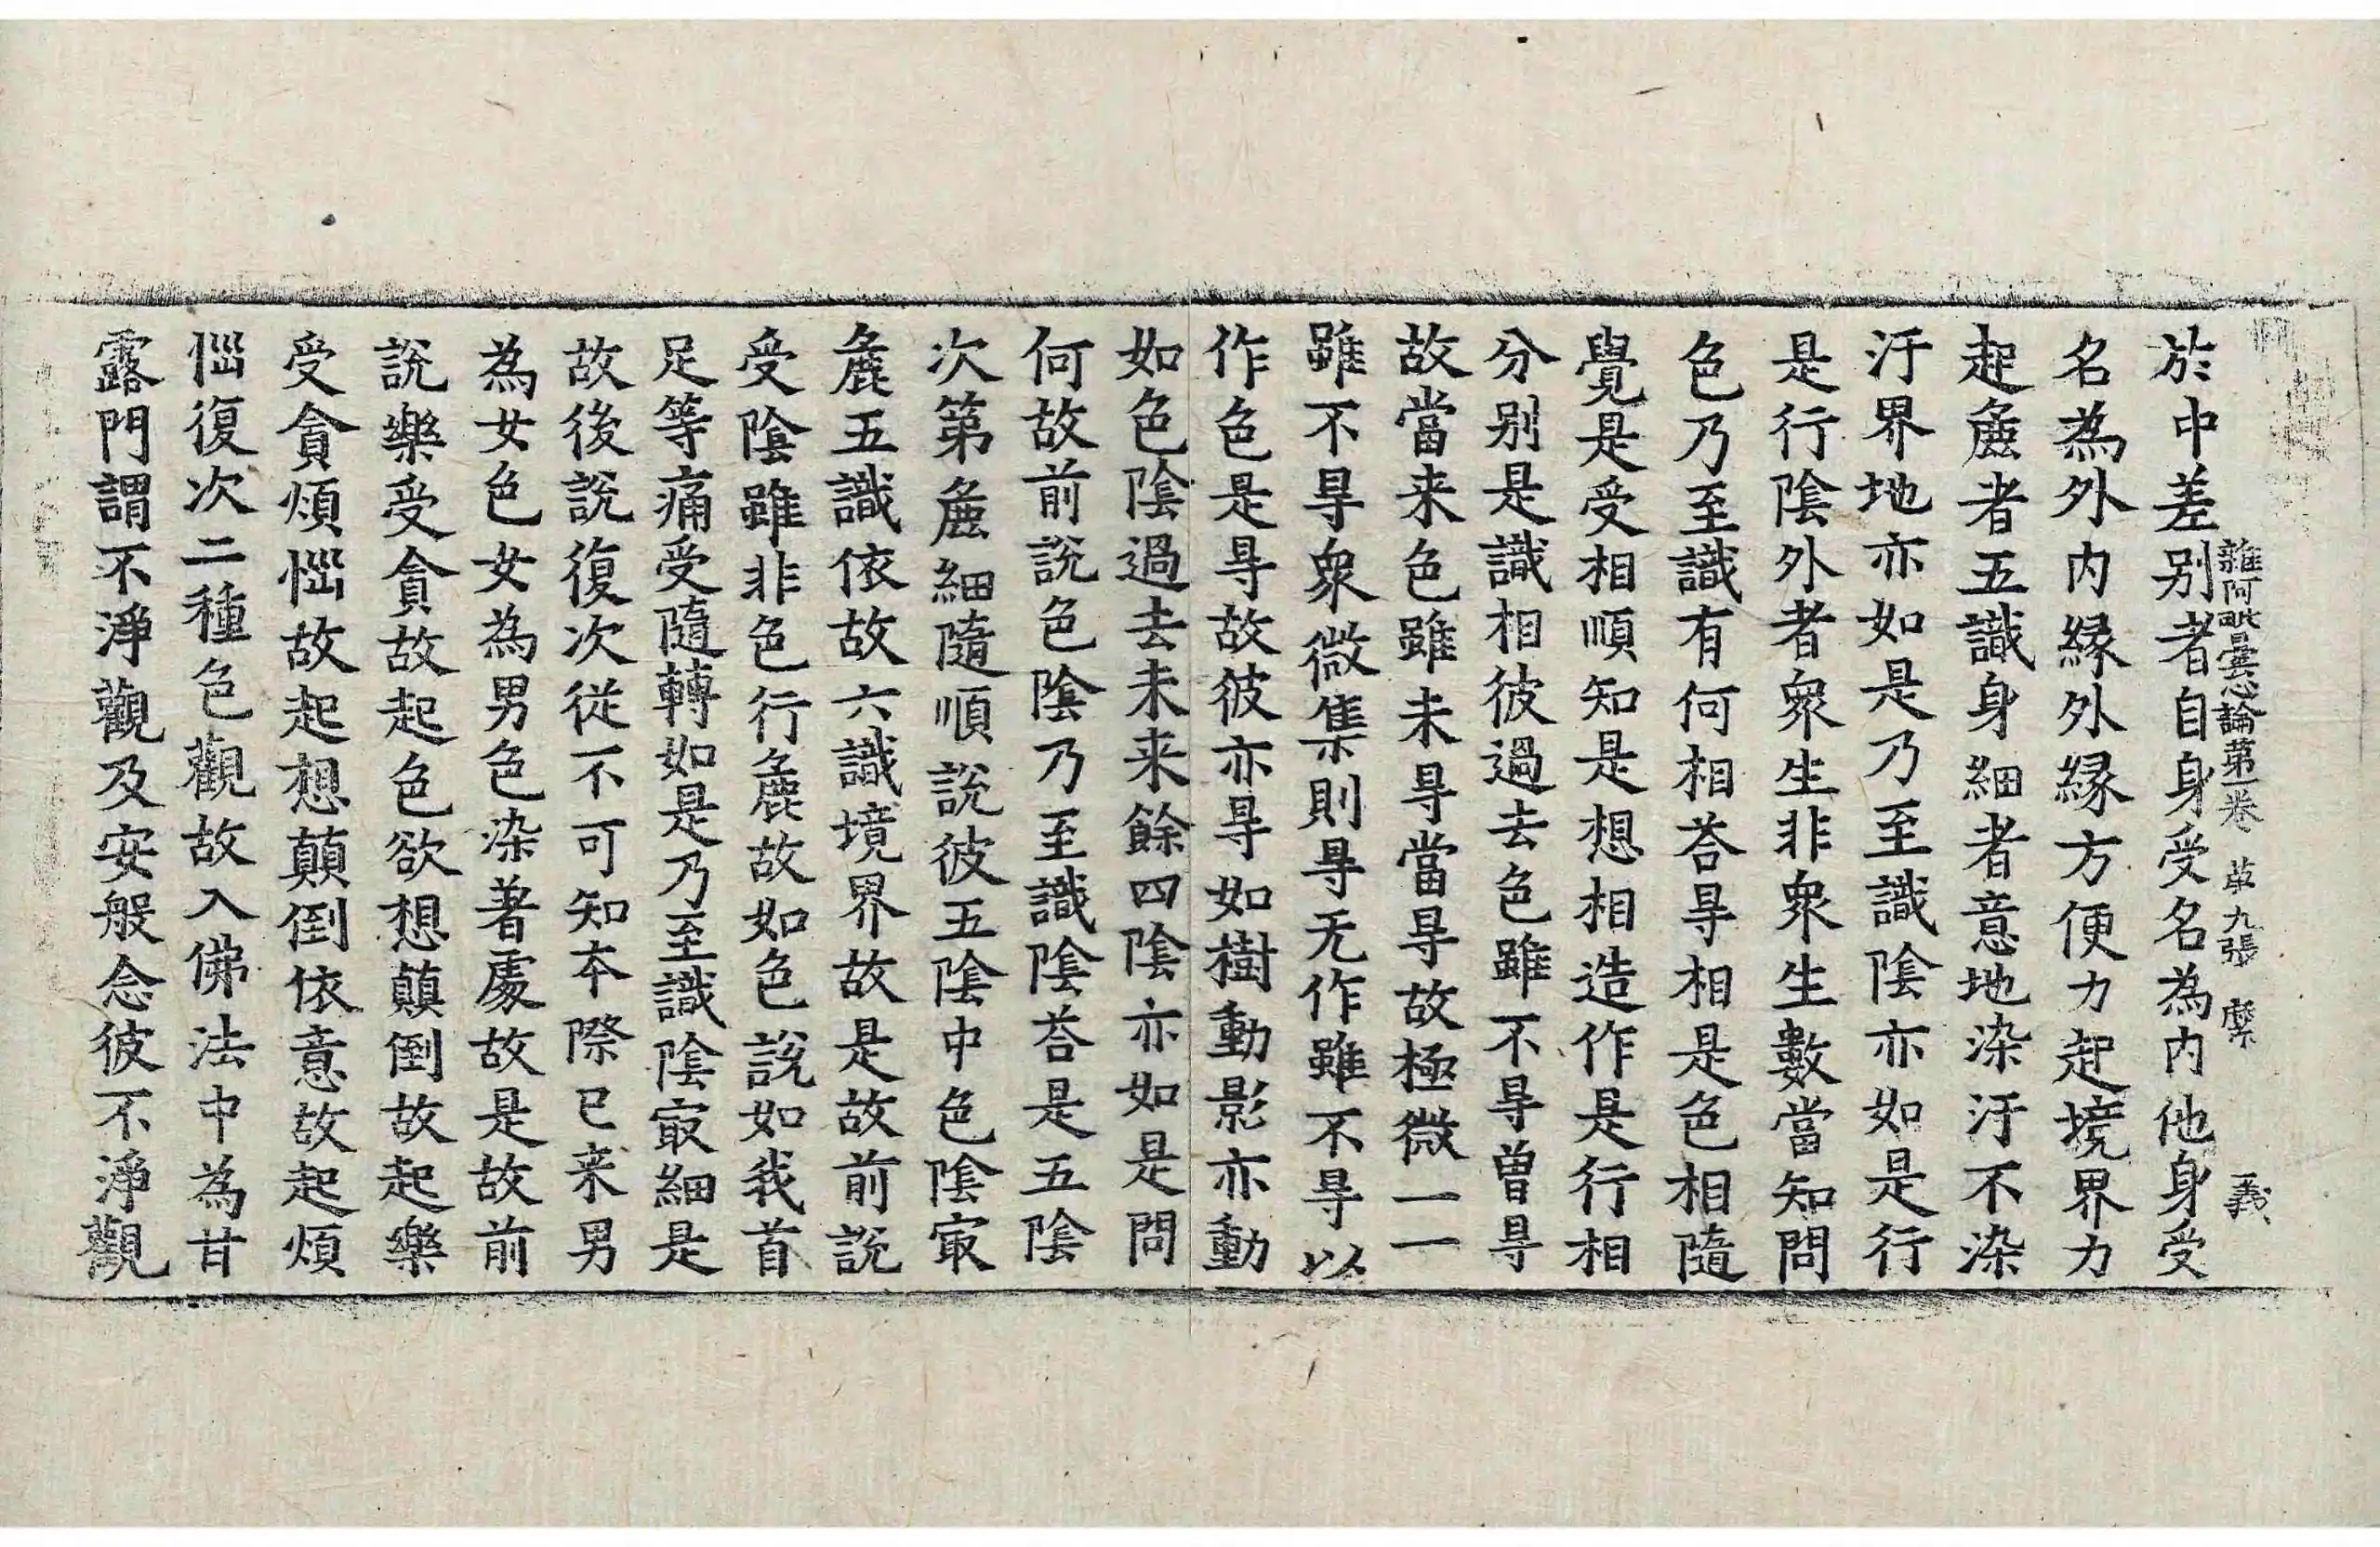 雜阿毗曇心論第一卷 苐九張 縻 義
於中差别者自身受名為内他身受
名為外内縁外縁方便力起境界力
起麁者五識身細者意地染汙不染
汙界地亦如是乃至識陰亦如是行
是行陰外者衆生非衆生數當知問
色乃至識有何相荅㝵相是色相隨
覺是受相順知是想相造作是行相
分别是識相彼過去色雖不㝵曽㝵
故當来色雖未㝵當㝵故極微一一
雖不㝵衆微集則㝵无作雖不㝵以
作色是㝵故彼亦㝵如樹動影亦動
如色陰過去未来餘四陰亦如是問
何故前説色陰乃至識陰荅是五陰
次第麁細隨順説彼五陰中色陰㝡
麁五識依故六識境界故是故前説
受陰雖非色行麁故如色說如我首
足等痛受隨轉如是乃至識陰㝡細是
故後説復次従不可知夲際已来男
為女色女為男色染著處故是故前
説樂受貪故起色欲想顛倒故起樂
受貪煩惱故起想顛倒依意故起煩
惱復次二種色觀故入佛法中為甘
露門謂不淨觀及安般念彼不淨觀